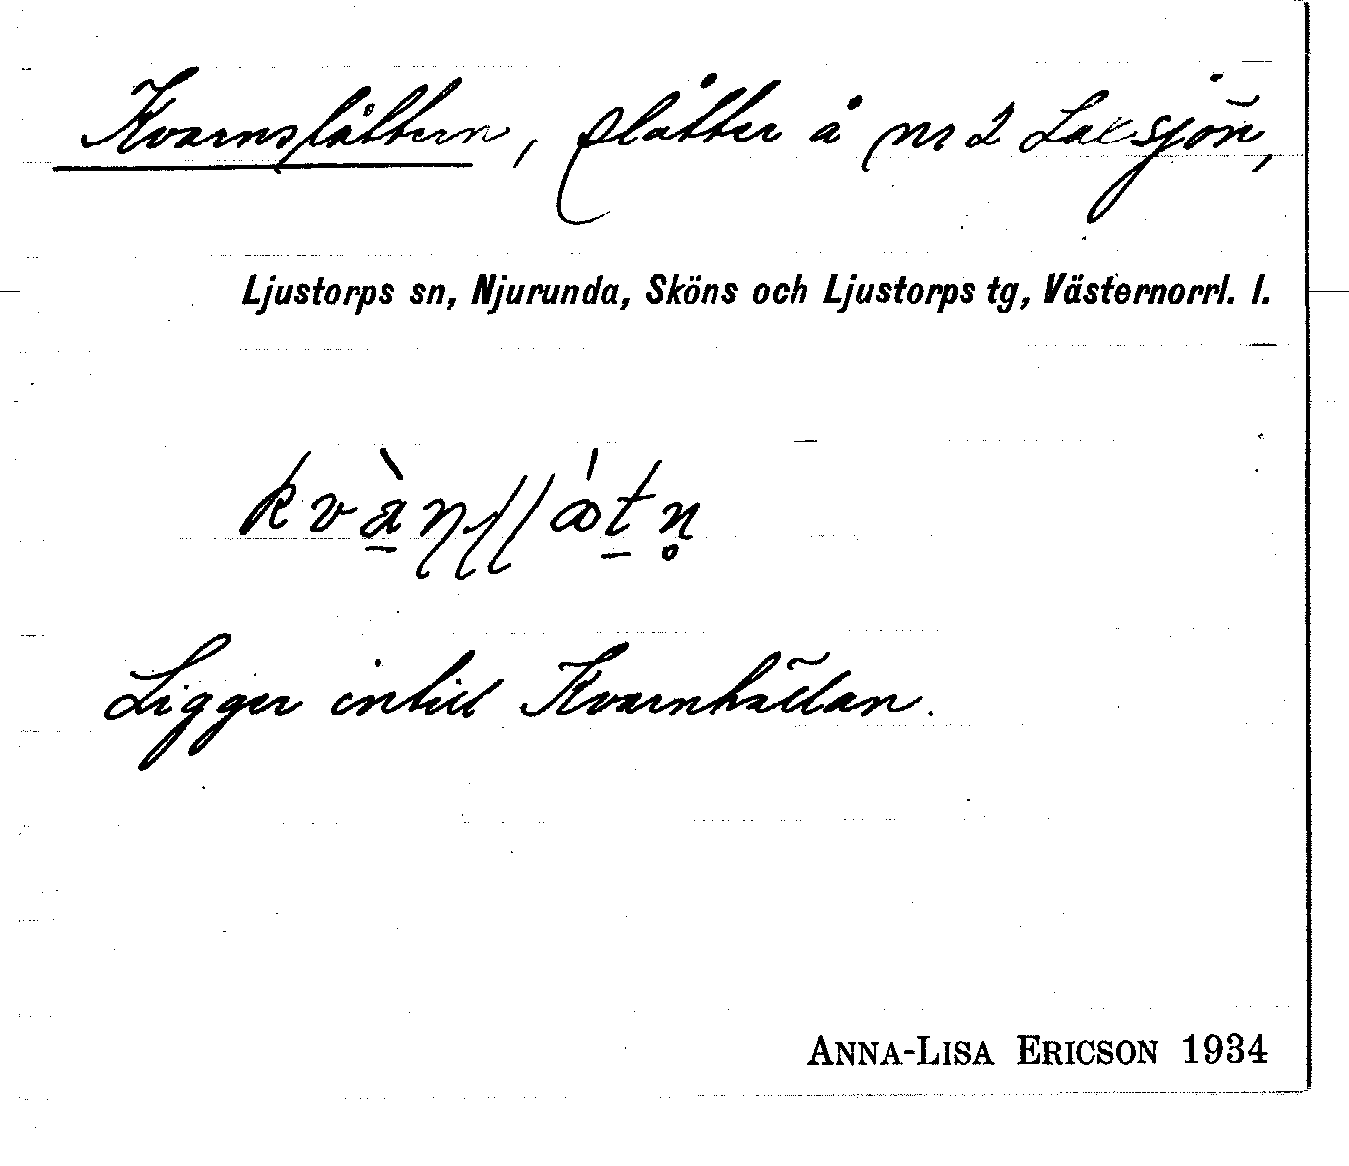 Kvarnslåttern, slåtter å nr 2 Laxsjön,
Ljustorps sn, Njurunda, Sköns och Ljustorps tg, Västernorrl. l.
Ligger intill Kvarnhällan.
ANNA-LISA ERICSON 1934